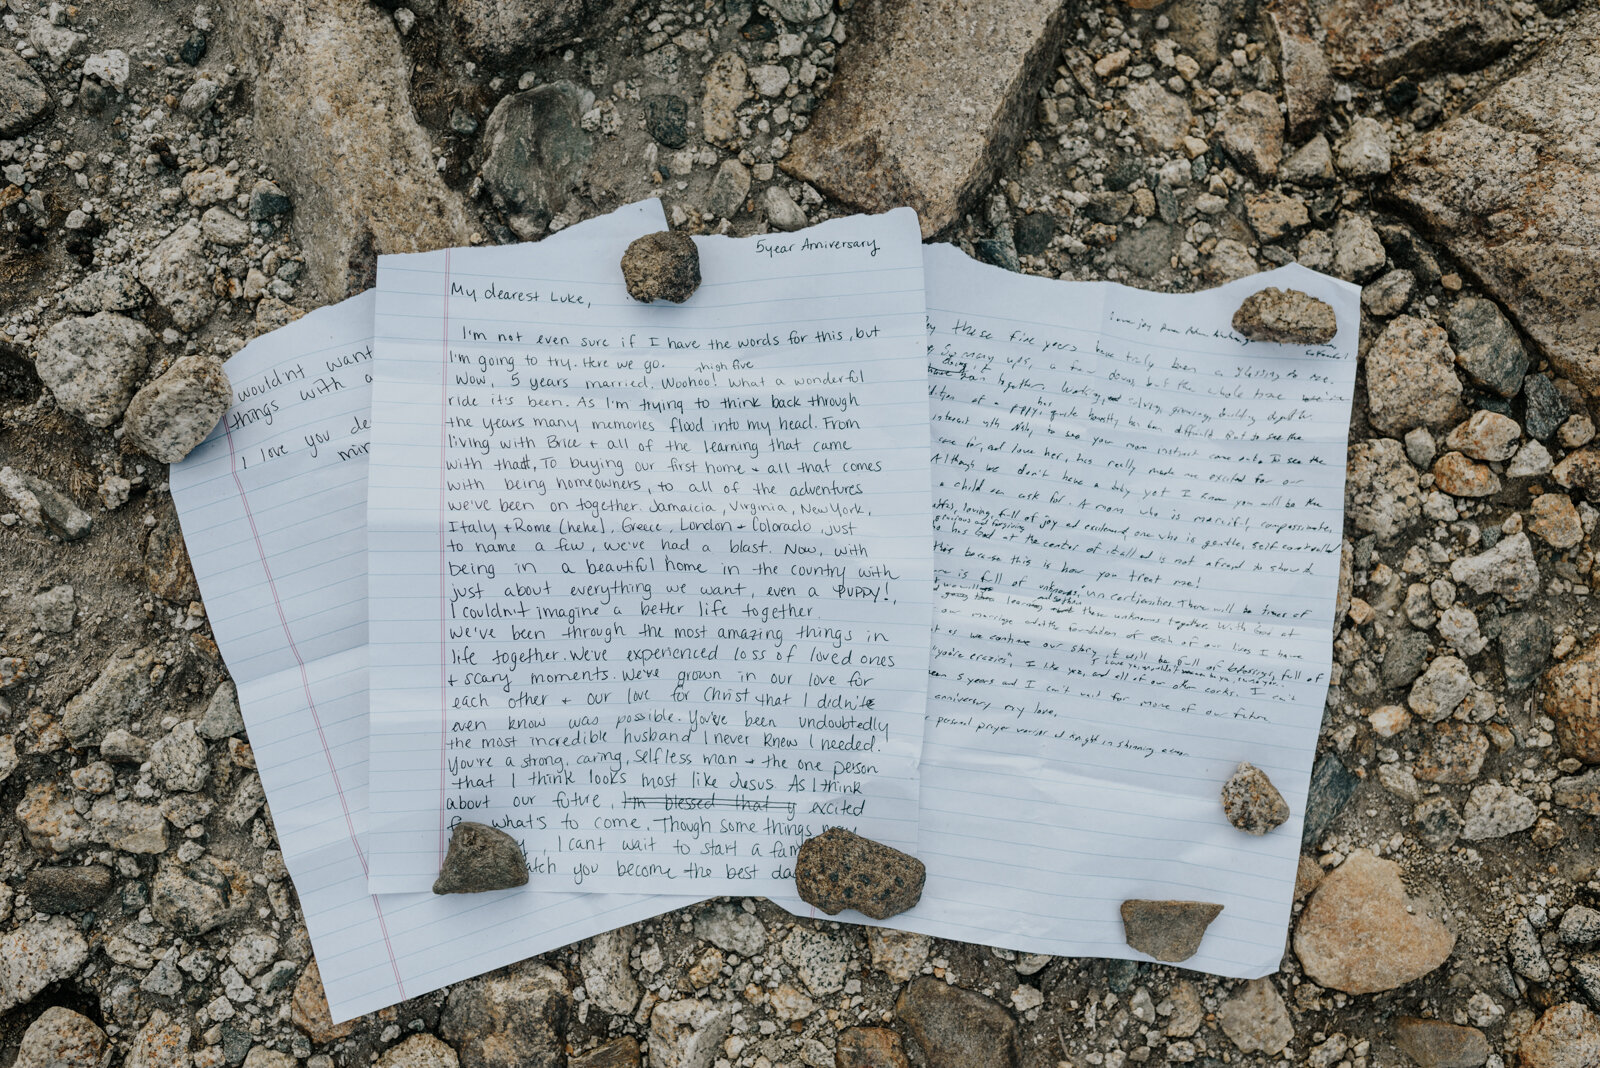 wouldn't want
things with a
I love you de
mir
5 year Anniversary
My dearest Luke,
I'm not even sure if I have the words for this, but
I'm going to try. Here we go.
high five
Wow, 5 years married. Woohoo! What a wonderful
ride it's been. As I'm trying to think back through
the years many memories flood into my head. From
living with Brice + all of the learning that came
with that, To buying our first home + all that comes
with being homeowners, to all of the adventures
we've been on together. Jamaicia, Virginia, New York,
Italy + Rome (hehe), Greece, London + Colorado just
to name a few, we've had a blast. Now, with
being in a beautiful home in the country with
just about everything we want, even a PUPPY!,
I couldn't imagine a better life together.
We've been through the most amazing things in
life together. We've experienced loss of loved ones
+ scary moments. We've grown in our love for
each other + our love for Christ that I didn't
even know was possible. You've been undoubtedly
the most incredible husband I never knew I needed.
You're a strong, caring, selfless man + the one person
that I think looks most like Jesus. As I think
about our future, I'm blessed that y excited
what's to come. Though some things may
, I cant wait to start a fam
atch you become the best da
these five years have truly been a blessing to me.
so many ups, a few downs, but the whole time
together. Working, solving, growing, building
of a puppy, quite honestly has been difficult but to see the
interact with to see your mom instinct come out. To see the
care for, and love her, has really made me excited for our
Although we don't have a baby yet I know you will be the
a child can ask for. A mom who is merciful, compassionate,
loving, full of joy and excitement, one who is gentle, self controlled
gracious and forgiving
has God at the center of it all and is not afraid to show it
this because this is how you treat me!
is full of unknowns, uncertainties. There will be times of
these unknowns together. With God at
our marriage and the foundation of each of our lives I have
as we continue our story it will be full of
"you're crazies", I like yea, and all of our other corks. I can't
been 5 years and I can't wait for more of our future
anniversary my love,
personal prayer warrior and knight in shining armor